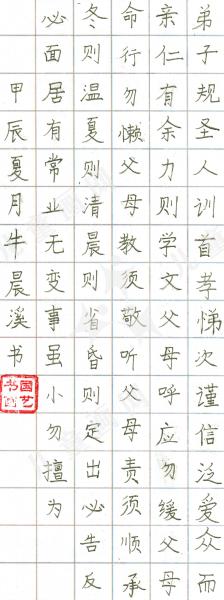 弟子规圣人训首孝悌次谨信泛爱众而
亲仁有余力则学文父母呼应勿缓父母
命行勿懒父母教须敬听父母责须顺承
冬则温夏则清晨则省昏则定出必告反
必面居有常业无变事虽小勿擅为
甲辰夏月牛晨溪书
国艺书画